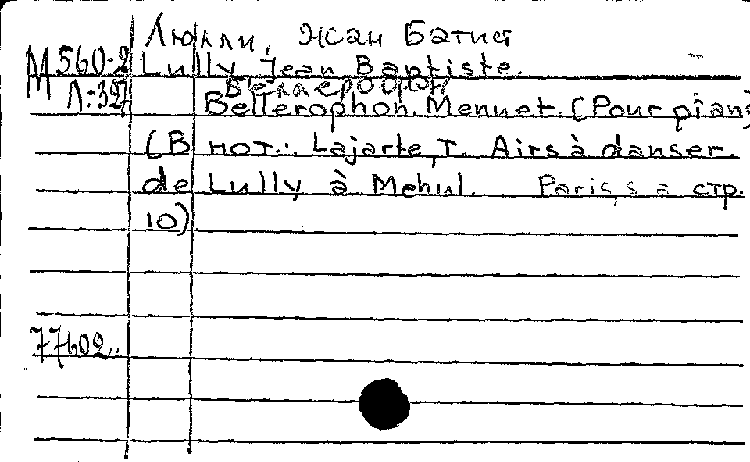 Люлли, Жан Батист
М 560-2 Lully Jean Baptiste.
Беллерофон
Л:327 Bellerophon. Menuet. [Pour piano]
(В нот.: Lajarte, T. Airs à danser.
de Lully à Mehul. Paris, s a стр.
10)
77602